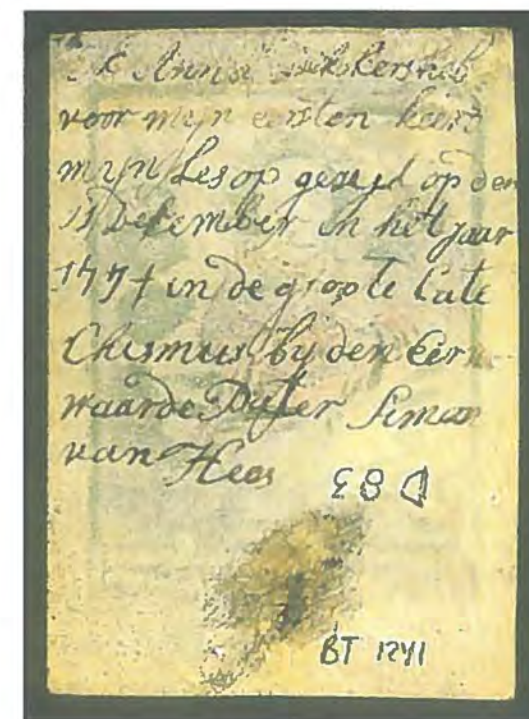 Ik Anna heb
voor mijn eersten keer
mijn Les op gezejd op den
11 December in het jaar
in de groote Cate
Chismus bij den Eerw
waarde Pater Simon
van Hees
D 83
BT 1241